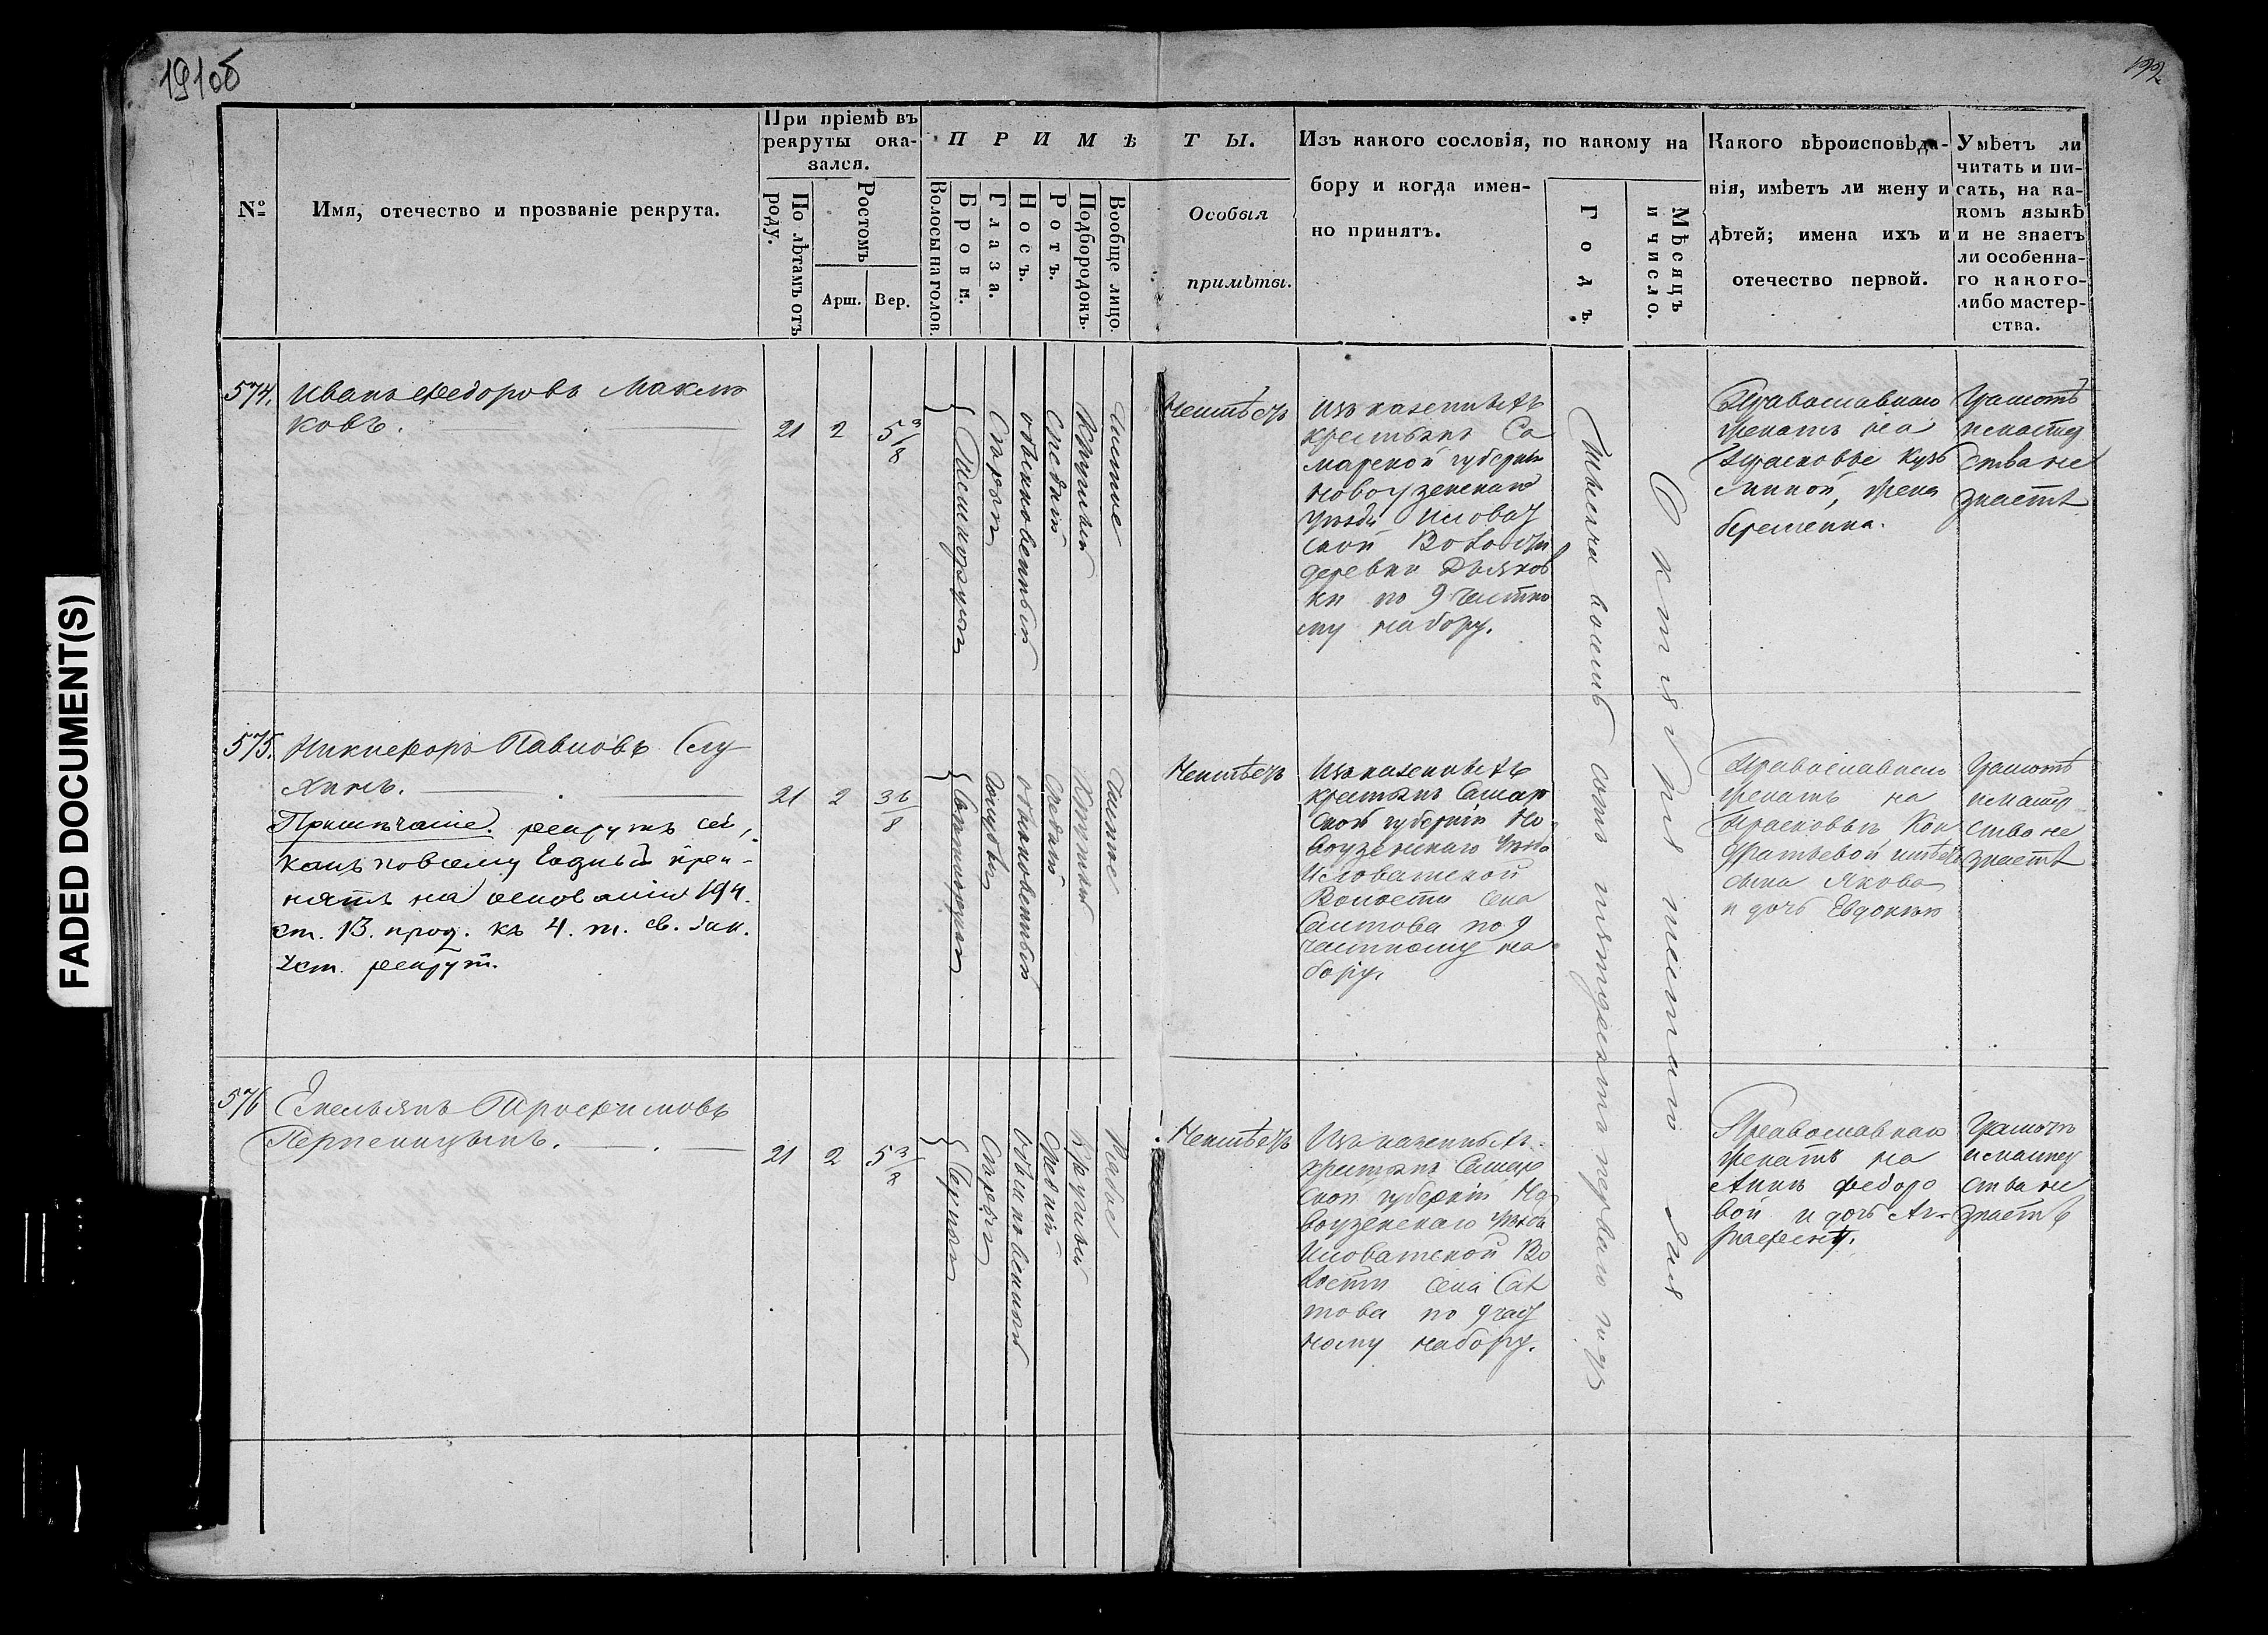 191об
192
FADED DOCUMENT(S)
№
Имя, отечество и прозваніе рекрута.
При пріемѣ въ
рекруты ока-
зался.
По лѣтамъ отъ
роду.
Ростомъ
Арш.
Вер.
ПРИМѢТЫ.
Волосы на голов.
Брови.
Глаза.
Носъ.
Ротъ.
Подбородокъ.
Вообще лицо.
Особыя
примѣты.
Изъ какого сословія, по какому на
бору и когда имен-
но принятъ.
Годъ.
Мѣсяцъ
и число.
Какого вѣроисповѣда-
нія, имѣетъ ли жену и
дѣтей; имена ихъ и
отечество первой.
Умѣетъ ли
читать и пи-
сать, на ка-
комъ языкѣ
и не знаетъ
ли особенна-
го какого-
либо мастер-
ства.
574.
Иванъ Федоровъ Маклю
ковъ.
21
2
5 3/8
Сѣрыя
обыкновенный
Средній
Круглый
Чистое
Неимѣетъ
Изъ казенныхъ
крестьянъ Са
марской губерніи
Новоузенскаго
уѣзда Иловат
ской Волости
деревни Дьяков
ки по 9 частно
му набору.
Тысяча восемь сотъ пятдесятъ перваго года
Октября шестаго дня
Православнаго
женатъ на
Прасковье Кузь
миной, жена
беременна.
Грамотѣ
и мастер
ства не
знаетъ
575.
Никифоръ Павловъ Слу
хинъ.
Примѣчаніе. рекрутъ сей,
какъ по всему годный при-
нятъ на основаніи 194.
ст. 13. прод. къ 4. т. св. Зак.
Уст. рекрут.
21
2
Голубыя
обыкновенный
Средній
Круглый
Чистое
Неимѣетъ
Изъ казенныхъ
крестьянъ Самар
ской губерніи Но
воузенскаго уѣзда
Иловатской
Волости села
Салтова по 9
частному на
бору.
Православнаго
женатъ на
Прасковьѣ Кон
дратьевой имѣетъ
сына Якова
и дочь Евдокію
Грамотѣ
и мастер
ства не
знаетъ
576
Емельянъ Трофимовъ
Перепелицынъ.
21
2
5 3/8
Сѣрыя
Обыкновенный
Средній
Круглый
Рябое
Неимѣетъ
Изъ казенныхъ
крестьянъ Самар
ской губерніи Но
воузенскаго уѣзда
Иловатской Во
лости села Сал
това по 9 част
ному набору.
Православнаго
женатъ на
Аннѣ Федоро
вой и дочь Аг-
рафену.
Грамотѣ
и мастер
ства не
знаетъ